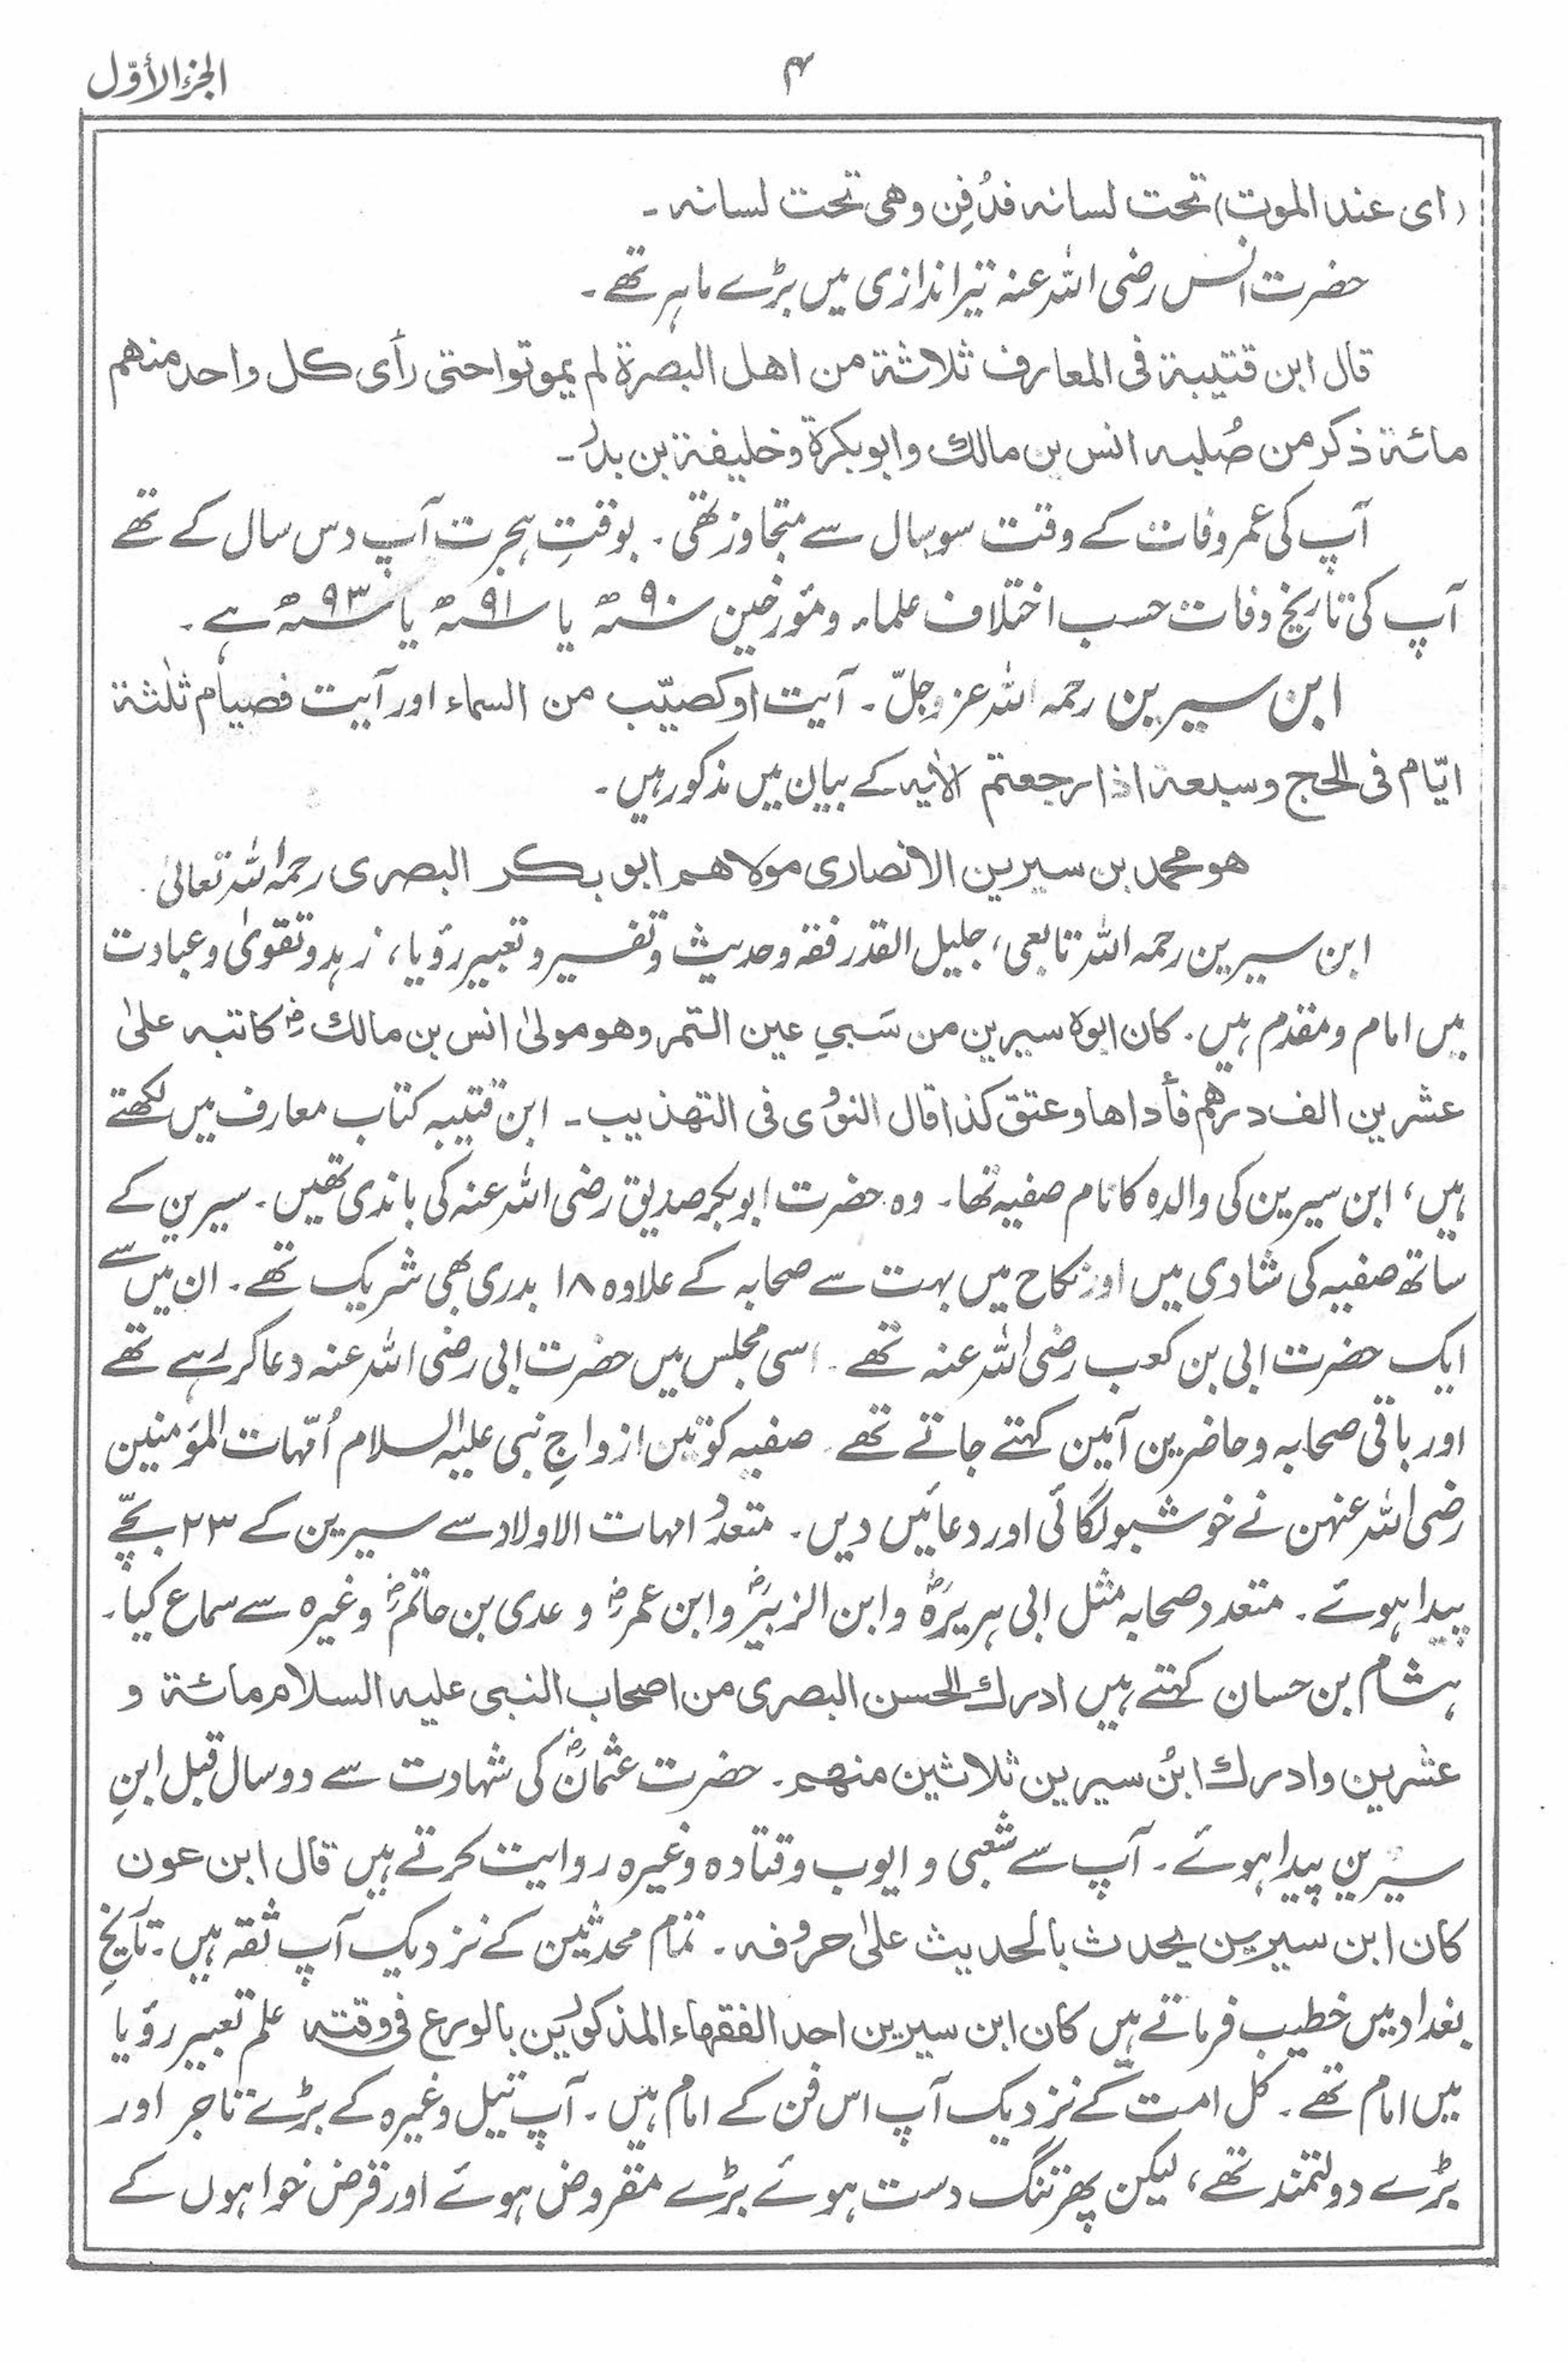 ۴
الجزء الأوّل
(ای عند الموت) تحت لسانہ فدُفِن وھی تحت لسانہ ۔
حضرت انس رضی اللہ عنہ تیر اندازی میں بڑے ماہر تھے ۔
قال ابن قتیبۃ فی المعارف ثلاثۃ من اھل البصرۃ لم یموتوا حتی رأی کل واحد منھم
مائۃ ذکر من صُلبہ انس بن مالك وابوبکرۃ وخلیفۃ بن بدرؓ ۔
آپ کی عمر وفات کے وقت سو سال سے متجاوز تھی ۔ بوقتِ ہجرت آپ دس سال کے تھے
آپ کی تاریخ وفات حسب اختلاف علماء و مؤرخین سنہ ۹۰ھ یا سنہ ۹۱ھ یا سنہ ۹۳ھ ہے ۔
ابن سیرین رحمہ اللہ عزوجلّ ۔ آیت اوکصیّب من السماء اور آیت فصیام ثلٰثۃ
ایّام فی الحج وسبعۃ اذا رجعتم الاٰیہ کے بیان میں مذکور ہیں ۔
ھو محمد بن سیرین الانصاری مولاھم ابو بکر البصری رحمہ اللہ تعالیٰ ۔
ابن سیرین رحمہ اللہ تابعی، جلیل القدر فقہ و حدیث و تفسیر و تعبیر رؤیا، زہد و تقویٰ و عبادت
میں امام و مقدم ہیں ۔ کان ابوہ سیرین من سَبیِ عین التمر وھو مولیٰ انس بن مالكؓ کاتبہ علیٰ
عشرین الف درھم فأداھا وعتق کذا قال النوویؒ فی التھذیب ۔ ابن قتیبہ کتاب معارف میں لکھتے
ہیں، ابن سیرین کی والدہ کا نام صفیہ تھا ۔ وہ حضرت ابوبکر صدیق رضی اللہ عنہ کی باندی تھیں ۔ سیرین کے
ساتھ صفیہ کی شادی میں اور نکاح میں بہت سے صحابہ کے علاوہ ۱۸ بدری بھی شریک تھے ۔ ان میں سے
ایک حضرت ابی بن کعب رضی اللہ عنہ تھے ۔ اسی مجلس میں حضرت ابی رضی اللہ عنہ دعا کر رہے تھے
اور باقی صحابہ و حاضرین آمین کہتے جاتے تھے ۔ صفیہ کو تین ازواجِ نبی علیہ السلام اُمّہات المؤمنین
رضی اللہ عنہن نے خوشبو لگائی اور دعائیں دیں ۔ متعدد امہات الاولاد سے سیرین کے ۲۳ بچّے
پیدا ہوئے ۔ متعدد صحابہ مثل ابی ہریرہؓ و ابن الزبیرؓ و ابن عمرؓ و عدی بن حاتمؓ وغیرہ سے سماع کیا ۔
ہشام بن حسان کہتے ہیں ادرك الحسن البصری من اصحاب النبی علیہ السلام مائۃ و
عشرین وادرك ابنُ سیرین ثلاثین منھم ۔ حضرت عثمانؓ کی شہادت سے دو سال قبل ابنِ
سیرین پیدا ہوئے ۔ آپ سے شعبی و ایوب و قتادہ وغیرہ روایت کرتے ہیں قال ابن عون
کان ابن سیرین یحدث بالحدیث علیٰ حروفہ ۔ تمام محدثین کے نزدیک آپ ثقہ ہیں ۔ تاریخِ
بغداد میں خطیب فرماتے ہیں کان ابن سیرین احد الفقھاء المذکورین بالورع فی وقتہ علم تعبیر رؤیا
میں امام تھے ۔ کل امت کے نزدیک آپ اس فن کے امام ہیں ۔ آپ تیل وغیرہ کے بڑے تاجر اور
بڑے دولتمند تھے، لیکن پھر تنگ دست ہوئے بڑے مقروض ہوئے اور قرض خواہوں کے